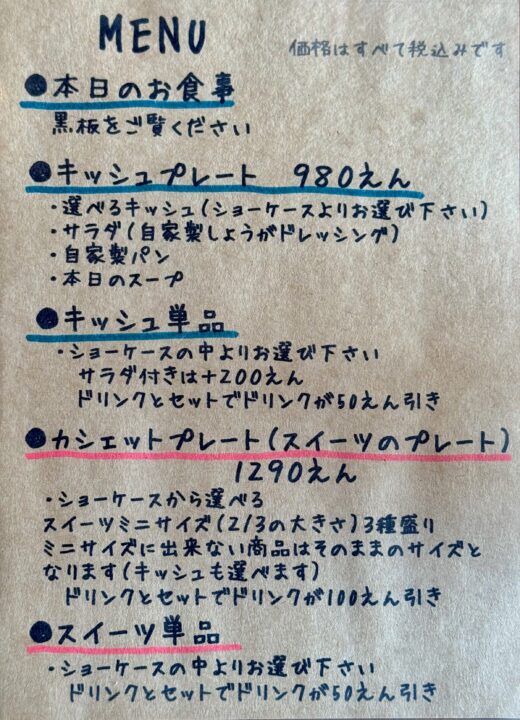 MENU
価格はすべて税込みです
●本日のお食事
黒板をご覧ください
●キッシュプレート 980えん
・選べるキッシュ(ショーケースよりお選び下さい)
・サラダ(自家製しょうがドレッシング)
・自家製パン
・本日のスープ
●キッシュ単品
・ショーケースの中よりお選び下さい
サラダ付きは+200えん
ドリンクとセットでドリンクが50えん引き
●カシェットプレート(スイーツのプレート)
1290えん
・ショーケースから選べる
スイーツミニサイズ(2/3の大きさ)3種盛り
ミニサイズに出来ない商品はそのままのサイズと
なります(キッシュも選べます)
ドリンクとセットでドリンクが100えん引き
●スイーツ単品
・ショーケースの中よりお選び下さい
ドリンクとセットでドリンクが50えん引き